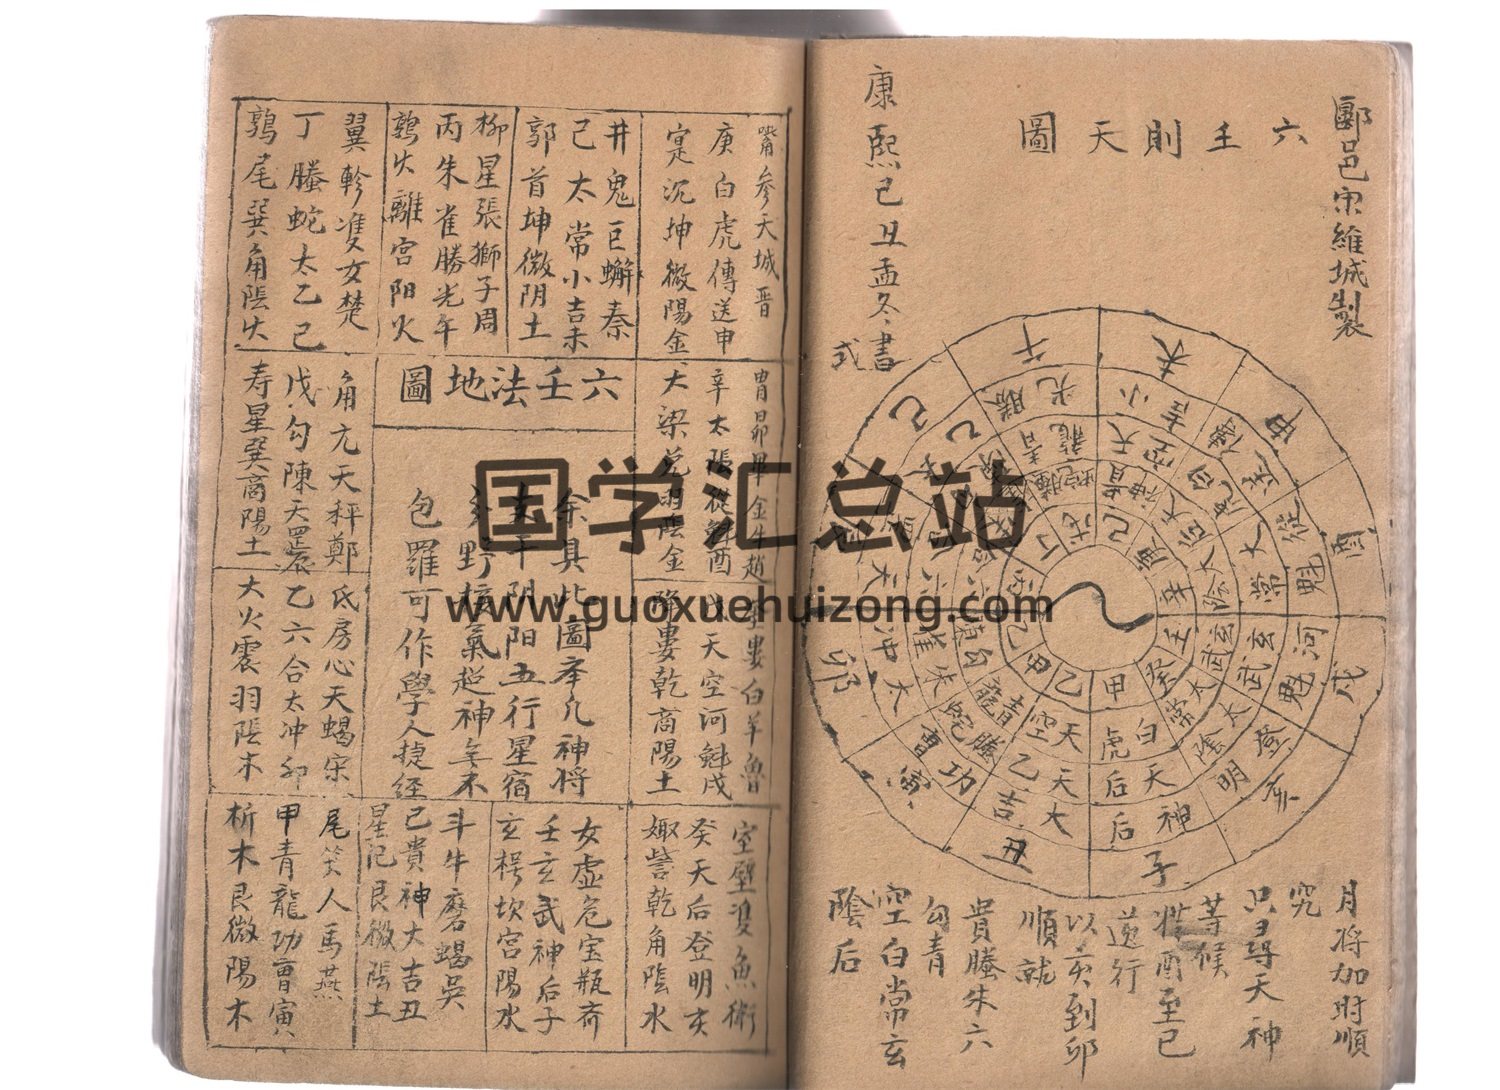 酈邑宋維城製
六壬則天圖
康熙己丑孟冬書
式
午
未
申
酉
戌
亥
子
丑
寅
卯
巳
勝光
小吉
傳送
從魁
河魁
登明
神后
大吉
功曹
太冲
太乙
天空
白虎
太常
玄武
太陰
天后
天乙
螣蛇
朱雀
六合
青龍
甲
乙
丙
丁
戊
己
庚
辛
壬
癸
月将加时順
究
只尋天神
等候
逆行
以亥到卯
順就
貴螣朱六
勾青
空白常玄
陰后
嘴參天城晋
庚白虎傳送申
寔沉坤微陽金
井鬼巨蠏秦
己太常小吉未
郭首坤微阴土
柳星張獅子周
丙朱雀勝光午
鶉火離宫阳火
翼軫双女楚
丁螣蛇太乙巳
鶉尾巽角陰火
胃昴畢金牛趙
辛太陰從魁酉
大梁兑羽陰金
六壬法地圖
角亢天秤鄭
戊勾陳天罡辰
寿星巽商陽土
奎婁白羊魯
戊天空河魁戌
降婁乾商陽土
余具此圖奉凡神将
支干阴阳五行星宿
分野核氣超神無不
包羅可作學人捷径
氐房心天蝎宋
乙六合太冲卯
大火震羽陰木
室壁双魚衛
癸天后登明亥
娵訾乾角陰水
女虚危宝瓶齐
壬玄武神后子
玄枵坎宫陽水
斗牛磨蝎吳
己貴神大吉丑
星记艮微陰土
尾箕人馬燕
甲青龍功曹寅
析木艮微陽木
国学汇总站
www.guoxuehuizong.com